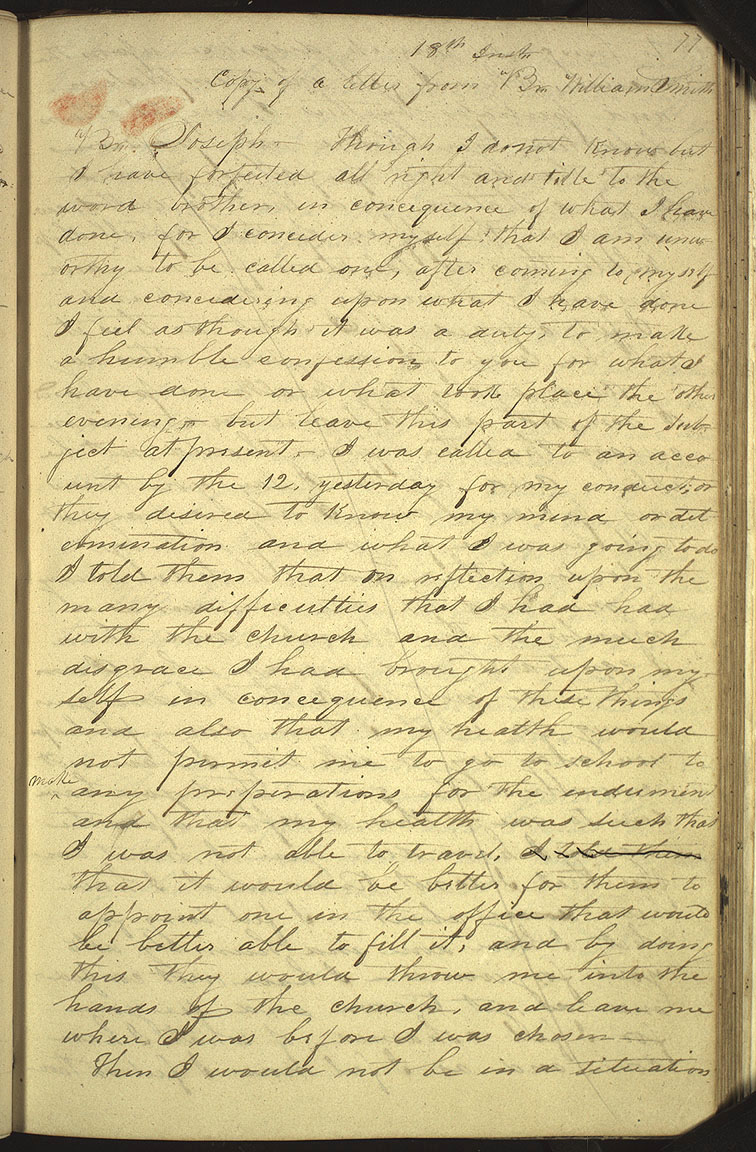 77
18th Inst
Copy of a letter from Br. William Smith
Br. Joseph— Though I do not know but
I have forfeited all right and title to the
word brother, in concequence of what I have
done, for I concider myself that I am unw-
orthy to be called one, after coming to myself
and concidering upon what I have done
I feel as though it was a duty, to make
a humble confession to you for what I
have done or what took place the other
evening,— but leave this part of the sub-
ject at present— I was called to an acco-
unt by the 12, yesterday for my conduct; or
they desired to know my mind or det-
ermination and what I was going to do
I told them that on reflection upon the
many difficulties that I had had
with the church and the much
disgrace I had brought upon my-
self in concequence of these things
and also that my health would
not permit me to go to school to
make
any preperations for the endument
and that my health was such that
I was not able to travel, I told them
that it would be better for them to
appoint one in the office that would
be better able to fill it, and by doing
this they would throw me into the
hands of the church, and leave me
where I was before I was chosen—
Then I would not be in a situation